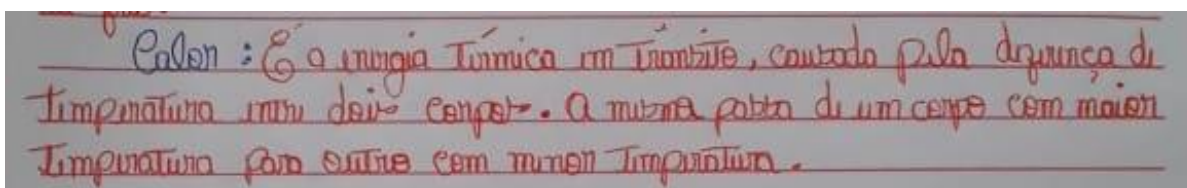 Calor : É a energia Térmica em Trânsito, causada pela diferença de
Temperatura entre dois corpos. A mesma passa de um corpo com maior
Temperatura para outro com menor Temperatura.